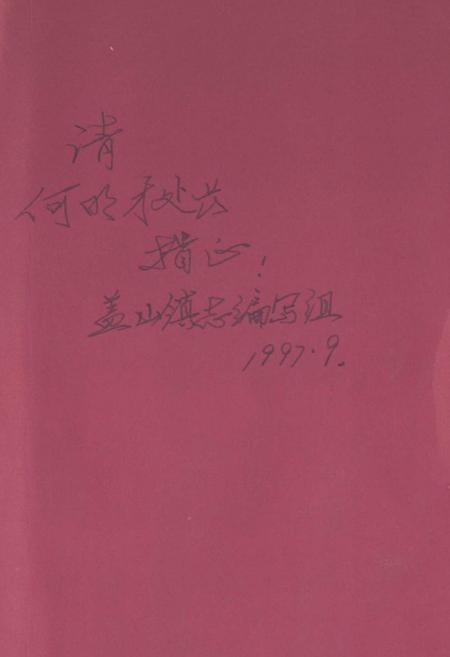 请
何明才处长
指正！
盖山镇志编写组
1997.9.